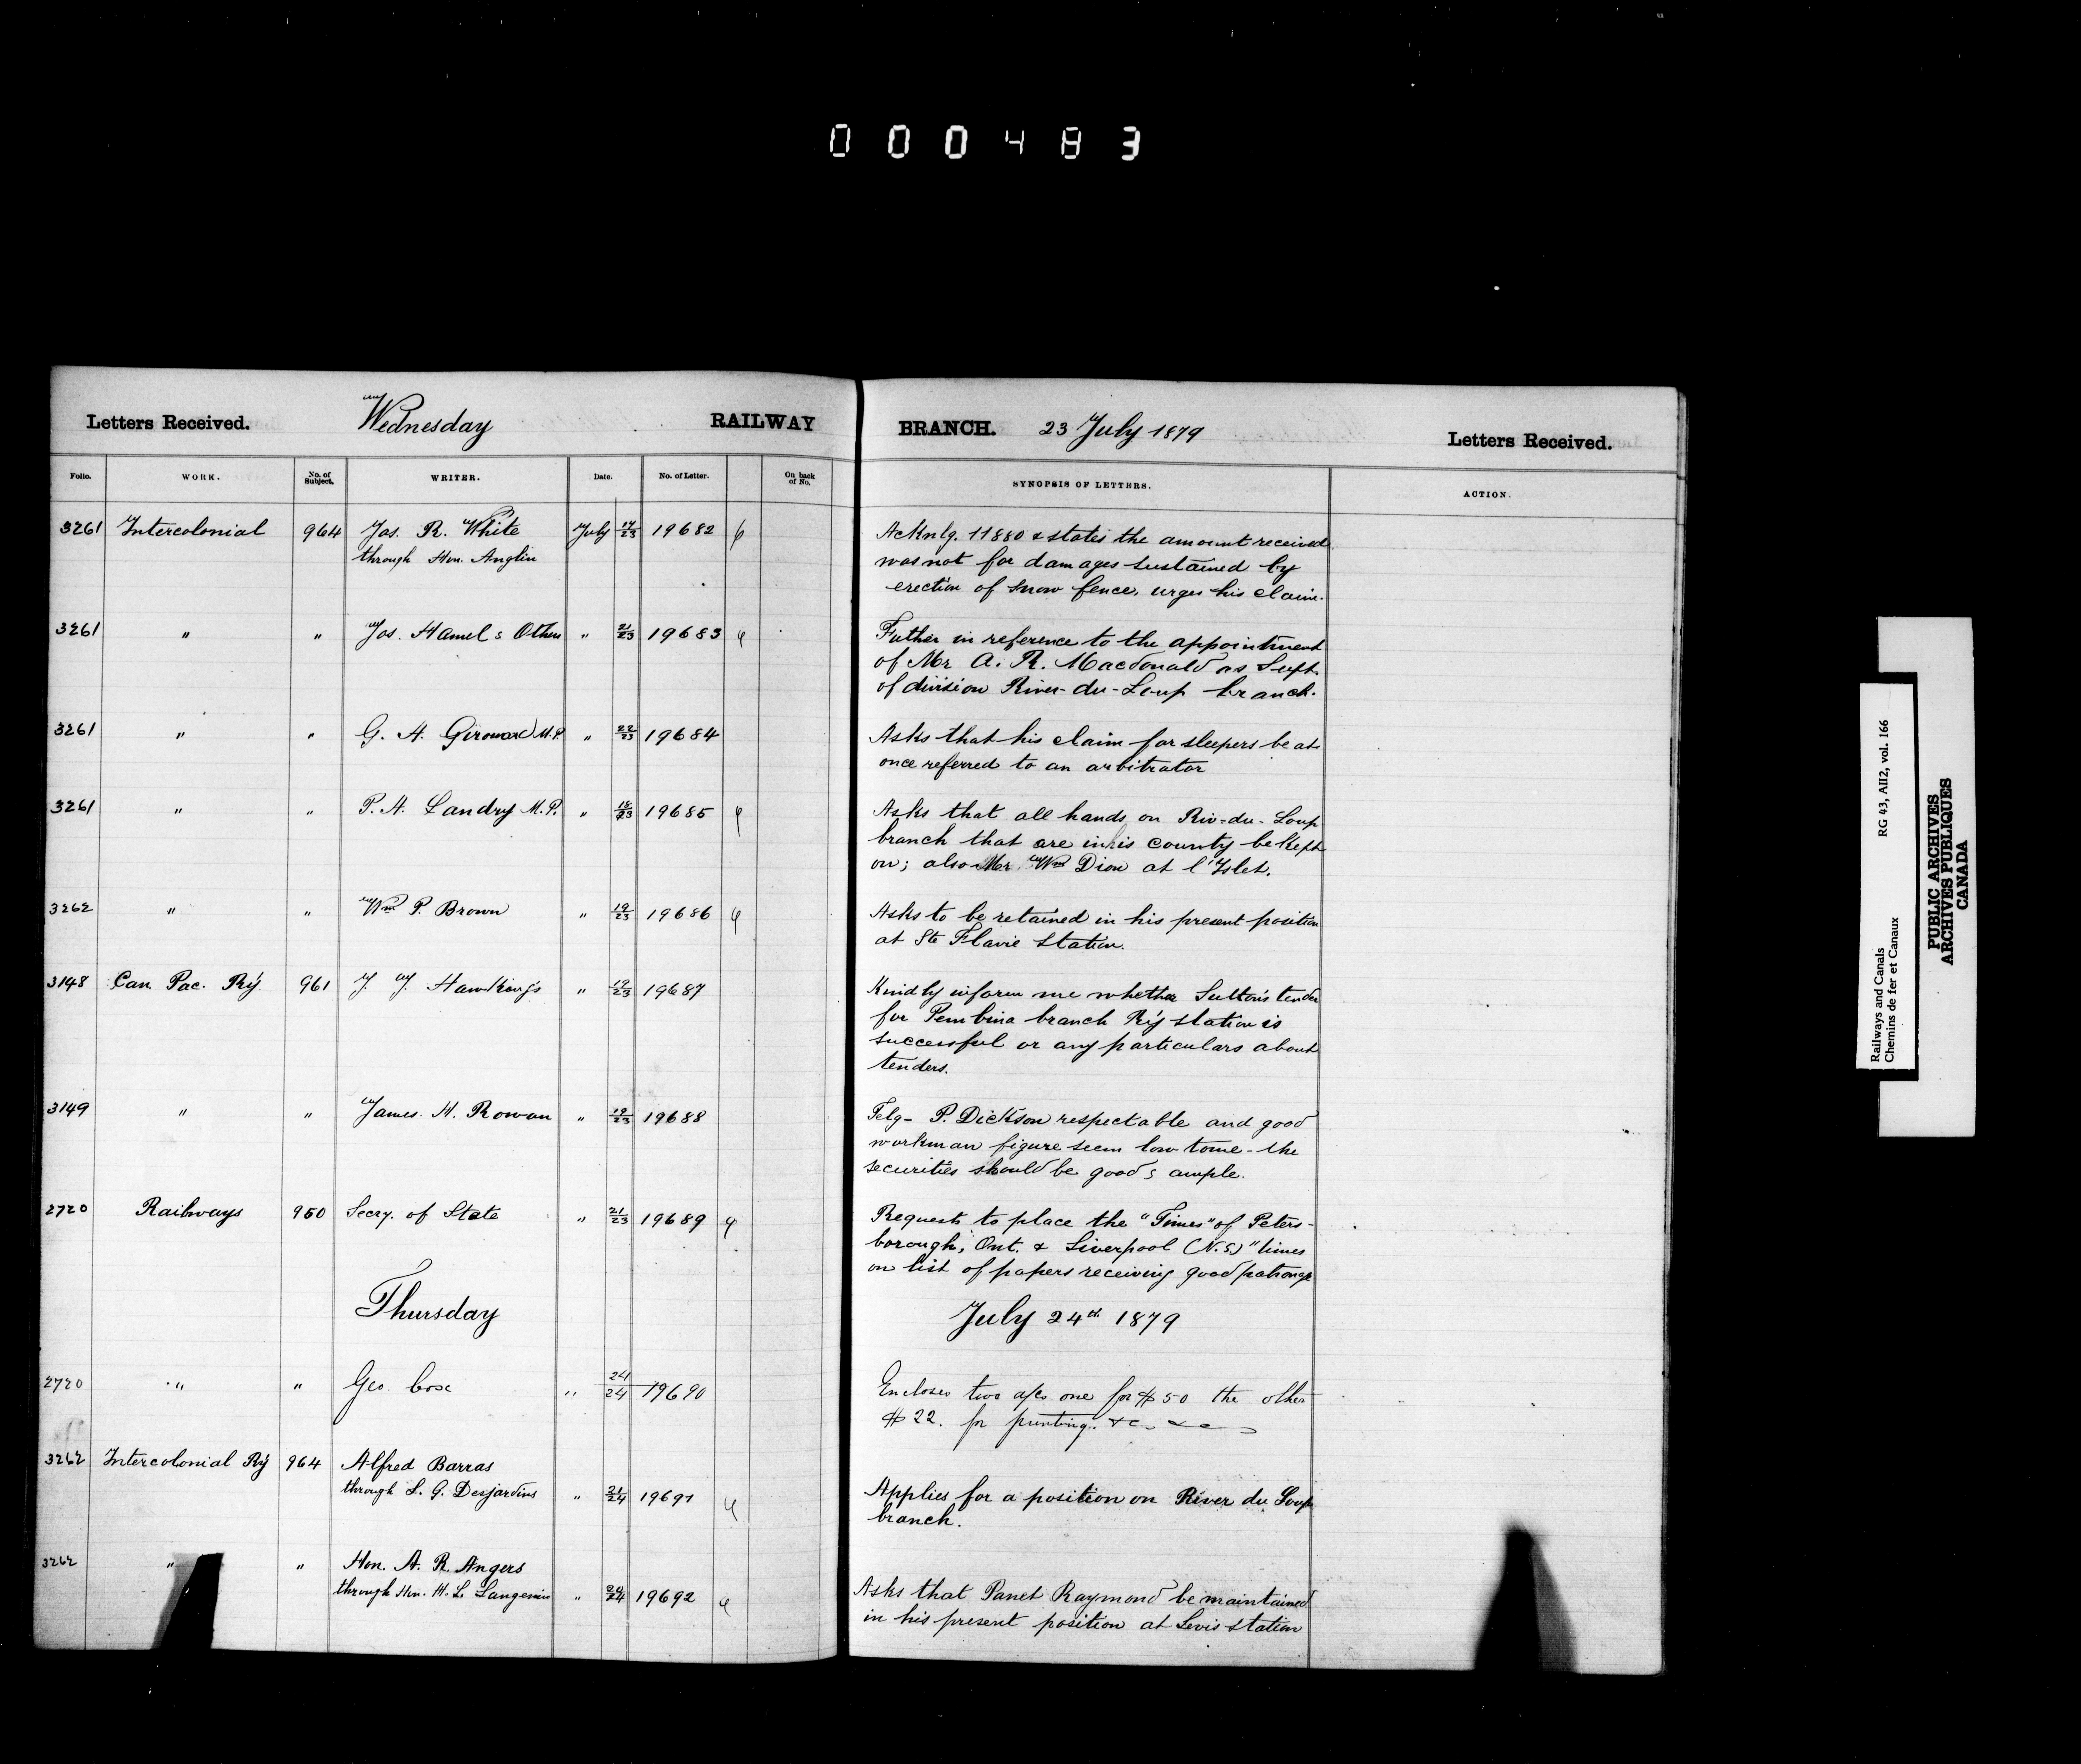 0 0 0 4 8 3
Letters Received. Wednesday RAILWAY BRANCH. 23 July 1879 Letters Received.
Folio. WORK. No. of Subject. WRITER. Date. No. of Letter. On back of No. SYNOPSIS OF LETTERS. ACTION.
3261 Intercolonial 964 Jos. R. White July 17/23 19682 Acknlg. 11880 & states the amount received
through Hon. Anglin was not for damages sustained by
erection of snow fence, urges his claim.
3261 " " Jos. Hamel & Others " 21/23 19683 Futher in reference to the appointment
of Mr A. R. Macdonald as Supt.
of division River-du-Loup branch.
3261 " " G. A. Girouard M.P. " 22/23 19684 Asks that his claim for sleepers be at
once referred to an arbitrator
3261 " " P. A. Landry M.P. " 18/23 19685 Asks that all hands on Riv-du-Loup
branch that are in his county be kept
on; also Mr Wm Dion at l'Islet.
3262 " " Wm P. Brown " 19/23 19686 Asks to be retained in his present position
at Ste Flavie Station.
3148 Can. Pac. Ry 961 J. J. Hawkings " 19/23 19687 Kindly inform me whether Sutton's tender
for Pembina branch Ry station is
successful or any particulars about
tenders.
3149 " " James H. Rowan " 19/23 19688 Telg- P. Dickson respectable and good
workman figure seem low to me - the
securities should be good & ample.
2720 Railways 950 Secry. of State " 21/23 19689 Requests to place the "Times" of Peters-
borough, Ont. & Liverpool (N.S.) "times
on list of papers receiving good patronage
Thursday July 24th 1879
2720 " " Geo. Cox " 24/24 19690 Encloses two a/cs one for $50 the other
$22. for printing. &c
3262 Intercolonial Ry 964 Alfred Barras
through L. G. Desjardins " 21/24 19691 Applies for a position on River du Loup
branch.
3262 " " Hon. A. R. Angers
through Hon. H. L. Langevin " 24 19692 Asks that Panet Raymond be maintained
in his present position at Levis station
Railways and Canals RG 43, AII2, vol. 166
Chemins de fer et Canaux
PUBLIC ARCHIVES
ARCHIVES PUBLIQUES
CANADA